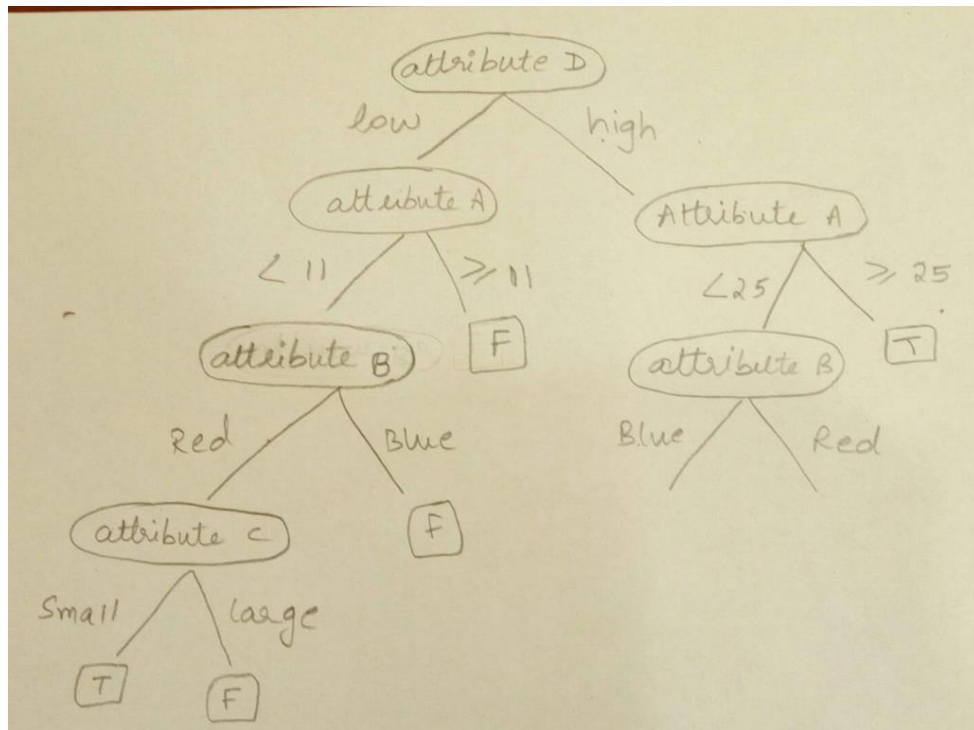 attribute D
low high
attribute A Attribute A
< 11 ≥ 11 <25 ≥ 25
attribute B F attribute B T
Red Blue Blue Red
attribute C F
Small large
T F